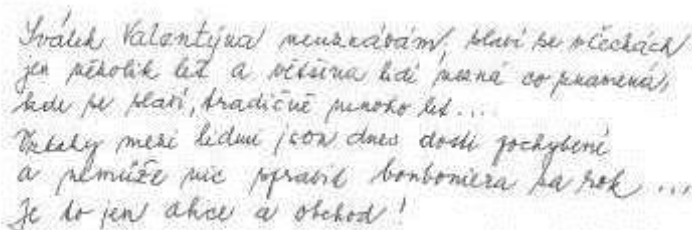 Svátek Valentýna neuznávám, slaví se v Čechách
jen několik let a většina lidí nezná co znamená,
kde se slaví, tradičně mnoho let...
Vztahy mezi lidmi jsou dnes dosti pochybené
a nemůže nic spravit bonboniera za rok ...
Je to jen akce a obchod!